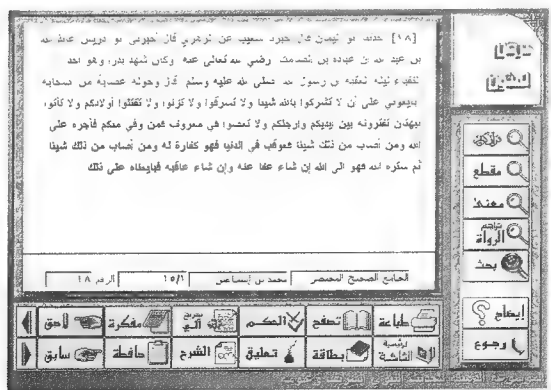 [١٨] حدثنا أبو اليمان قال أخبرنا شعيب عن الزهري قال أخبرني أبو إدريس عائذ الله
بن عبد الله أن عبادة بن الصامت رضي الله تعالى عنه وكان شهد بدرا وهو أحد
النقباء ليلة العقبة أن رسول الله صلى الله عليه وسلم قال وحوله عصابة من أصحابه
بايعوني على أن لا تشركوا بالله شيئا ولا تسرقوا ولا تزنوا ولا تقتلوا أولادكم ولا تأتوا
ببهتان تفترونه بين أيديكم وأرجلكم ولا تعصوا في معروف فمن وفي منكم فأجره على
الله ومن أصاب من ذلك شيئا فعوقب في الدنيا فهو كفارة له ومن أصاب من ذلك شيئا
ثم ستره الله فهو الى الله إن شاء عفا عنه وإن شاء عاقبه فبايعناه على ذلك
مقطع
معنى
تراجم الرواة
بحث
إيضاح
رجوع
الجامع الصحيح المختصر محمد بن إسماعيل ١٥/١ الرقم ١٨
طباعة تصفح الحكم تخريج آلي مفكرة لاحق
الشاشة الرئيسية بطاقة تعليق الشرح حافظة سابق